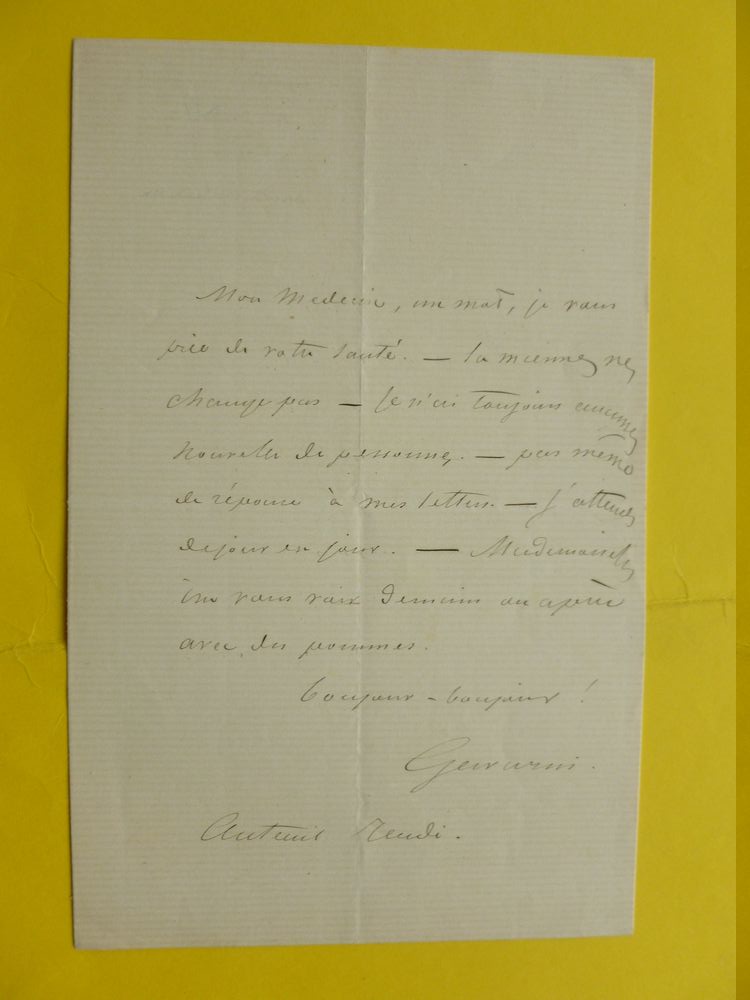 Mon Médecin, un mot, je vous
prie de votre santé. — la mienne ne
change pas — Je n'ai toujours aucune
nouvelle de personne, — pas même
de réponse à mes lettres — j'attends
de jour en jour. — Mademoiselle
vous voir demain ou après
avec des pommes.
bonjour – bonjour !
Gavarni.
Auteuil Jeudi.